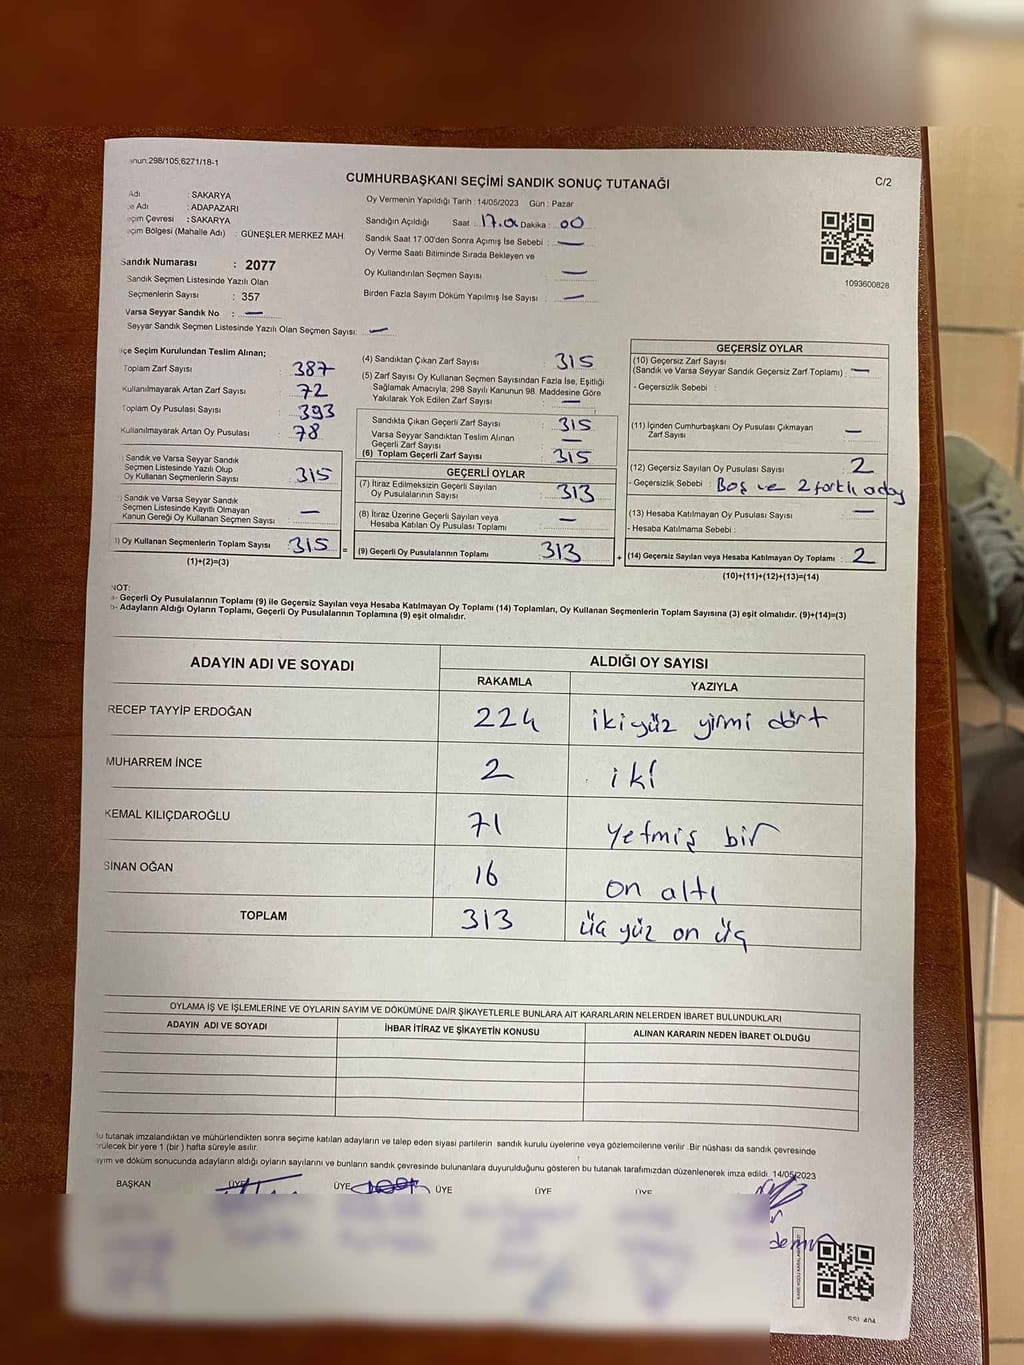 anun,298/105,6271/18-1
C/2
CUMHURBAŞKANI SEÇİMİ SANDIK SONUÇ TUTANAĞI
Adı : SAKARYA
çe Adı : ADAPAZARI
eçim Çevresi : SAKARYA
eçim Bölgesi (Mahalle Adı) : GÜNEŞLER MERKEZ MAH.
Sandık Numarası : 2077
Sandık Seçmen Listesinde Yazılı Olan
Seçmenlerin Sayısı : 357
Varsa Seyyar Sandık No : —
Seyyar Sandık Seçmen Listesinde Yazılı Olan Seçmen Sayısı: —
Oy Vermenin Yapıldığı Tarih : 14/05/2023 Gün : Pazar
Sandığın Açıldığı Saat : 17.00 Dakika : 00
Sandık Saat 17:00'den Sonra Açımış İse Sebebi : —
Oy Verme Saati Bitiminde Sırada Bekleyen ve
Oy Kullandırılan Seçmen Sayısı : —
Birden Fazla Sayım Döküm Yapılmış İse Sayısı : —
1093600828
lçe Seçim Kurulundan Teslim Alınan;
Toplam Zarf Sayısı : 387
Kullanılmayarak Artan Zarf Sayısı : 72
Toplam Oy Pusulası Sayısı : 393
Kullanılmayarak Artan Oy Pusulası : 78
) Sandık ve Varsa Seyyar Sandık
Seçmen Listesinde Yazılı Olup
Oy Kullanan Seçmenlerin Sayısı : 315
) Sandık ve Varsa Seyyar Sandık
Seçmen Listesinde Kayıtlı Olmayan
Kanun Gereği Oy Kullanan Seçmen Sayısı : —
) Oy Kullanan Seçmenlerin Toplam Sayısı : 315
(1)+(2)=(3)
(4) Sandıktan Çıkan Zarf Sayısı : 315
(5) Zarf Sayısı Oy Kullanan Seçmen Sayısından Fazla İse, Eşitliği
Sağlamak Amacıyla, 298 Sayılı Kanunun 98. Maddesine Göre
Yakılarak Yok Edilen Zarf Sayısı : —
Sandıkta Çıkan Geçerli Zarf Sayısı : 315
Varsa Seyyar Sandıktan Teslim Alınan
Geçerli Zarf Sayısı : —
(6) Toplam Geçerli Zarf Sayısı : 315
GEÇERLİ OYLAR
(7) İtiraz Edilmeksizin Geçerli Sayılan
Oy Pusulalarının Sayısı : 313
(8) İtiraz Üzerine Geçerli Sayılan veya
Hesaba Katılan Oy Pusulası Toplamı : —
= (9) Geçerli Oy Pusulalarının Toplamı : 313
GEÇERSİZ OYLAR
(10) Geçersiz Zarf Sayısı
(Sandık ve Varsa Seyyar Sandık Geçersiz Zarf Toplamı) : —
- Geçersizlik Sebebi :
(11) İçinden Cumhurbaşkanı Oy Pusulası Çıkmayan
Zarf Sayısı : —
(12) Geçersiz Sayılan Oy Pusulası Sayısı : 2
- Geçersizlik Sebebi : Boş ve 2 farklı aday
(13) Hesaba Katılmayan Oy Pusulası Sayısı : —
- Hesaba Katılmama Sebebi :
+ (14) Geçersiz Sayılan veya Hesaba Katılmayan Oy Toplamı : 2
(10)+(11)+(12)+(13)=(14)
NOT:
a- Geçerli Oy Pusulalarının Toplamı (9) ile Geçersiz Sayılan veya Hesaba Katılmayan Oy Toplamı (14) Toplamları, Oy Kullanan Seçmenlerin Toplam Sayısına (3) eşit olmalıdır. (9)+(14)=(3)
b- Adayların Aldığı Oyların Toplamı, Geçerli Oy Pusulalarının Toplamına (9) eşit olmalıdır.
ADAYIN ADI VE SOYADI
ALDIĞI OY SAYISI
RAKAMLA YAZIYLA
RECEP TAYYİP ERDOĞAN 224 ikiyüz yirmi dört
MUHARREM İNCE 2 iki
KEMAL KILIÇDAROĞLU 71 yetmiş bir
SİNAN OĞAN 16 on altı
TOPLAM 313 üç yüz on üç
OYLAMA İŞ VE İŞLEMLERİNE VE OYLARIN SAYIM VE DÖKÜMÜNE DAİR ŞİKAYETLERLE BUNLARA AİT KARARLARIN NELERDEN İBARET BULUNDUKLARI
ADAYIN ADI VE SOYADI İHBAR İTİRAZ VE ŞİKAYETİN KONUSU ALINAN KARARIN NEDEN İBARET OLDUĞU
Bu tutanak imzalandıktan ve mühürlendikten sonra seçime katılan adayların ve talep eden siyasi partilerin sandık kurulu üyelerine veya gözlemcilerine verilir .Bir nüshası da sandık çevresinde
rülecek bir yere 1 (bir ) hafta süreyle asılır.
ayım ve döküm sonucunda adayların aldığı oyların sayılarını ve bunların sandık çevresinde bulunanlara duyurulduğunu gösteren bu tutanak tarafımızdan düzenlenerek imza edildi. 14/05/2023
BAŞKAN ÜYE ÜYE ÜYE ÜYE ÜYE